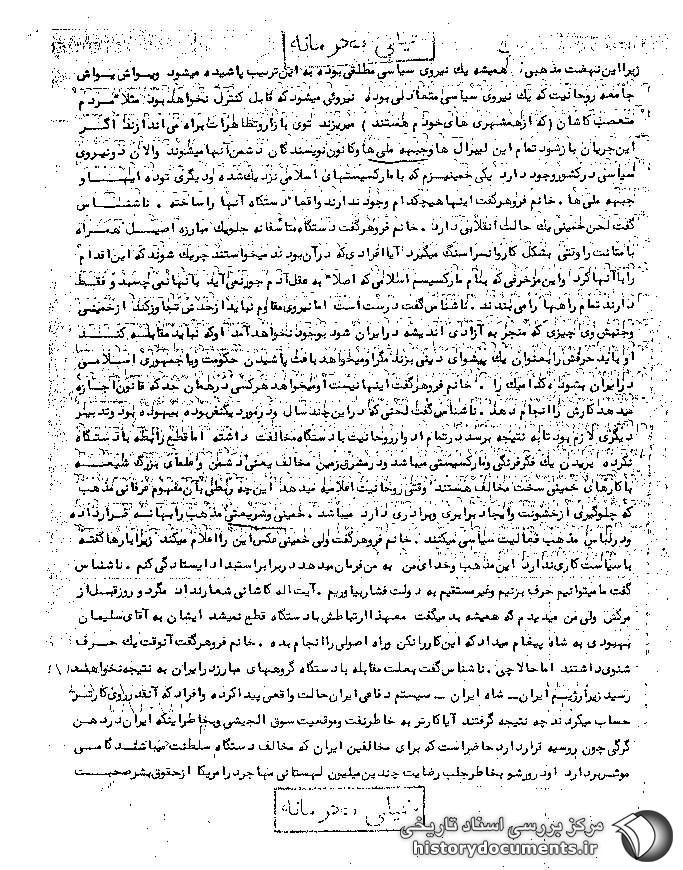 خیلی محرمانه
زیرا این نهضت مذهبی همیشه یك نیروی سیاسی مطلقی بوده به این ترتیب پاشیده میشود ویواش یواش
جامعه روحانیت که یك نیروی سیاسی متعادلی بوده نیروئی میشود که قابل کنترل نخواهد بود مثلا" مردم
متعصب کاشان (که از همشهری های خودم هستند) میریزند توی بازار و تظاهرات براه می اندازند اگر
این جریان باز شود تمام این لیبرال ها وجبهه ملی ها وکانون نویسندگان دشمن آنها میشوند والان دونیروی
سیاسی در کشور وجود دارد یکی خمینیزم که با مارکسیستهای اسلامی نزدیك شده ودیگری توده ایها و
جبهه ملی ها. خانم فروهر گفت اینها هیچکدام وجود ندارند واقعا" دستگاه آنها را ساخته. ناشناس
گفت لحن خمینی یك حالت انقلابی دارد. خانم فروهر گفت دستگاه متأسفانه جلو یك مبارزه اصیل همراه
با متانت را وقتی بشکل کاروانسرا سنگ میگیرد آیا افرادی که در آن بودند میخواستند چریك شوند که این اقدام
را با آنها کرد واین مزخرفی که بنام مارکسیسم اسلامی که اصلا" به عقل آدم جور نمی آید بآنها نمی چسبد و فقط
دارند تمام راهها را می بندند. ناشناس گفت درست است اما نیروی مقاوم نباید از حدش تجاوز کند از خمینی
وجنبش وی چیزی که منجر به آزادی اندیشه در ایران شود بوجود نخواهد آمد او که نباید مقابله کند
او باید حرفش را بعنوان یك پیشوای دینی بزند مگر او میخواهد باعث پاشیدن حکومت ویا جمهوری اسلامی
در ایران بشود کدامیك را. خانم فروهر گفت اینها نیست او میخواهد هرکسی در همان حد که قانون اجازه
میدهد کارش را انجام دهد. ناشناس گفت لحنی که در این چند سال ودر مورد یکنفر بوده بیهوده بود وتدبیر
دیگری لازم بود تا به نتیجه برسد در تمام ادوار روحانیت با دستگاه مخالفت داشته اما قطع رابطه با دستگاه
نکرده بریدن یك فکر فرنگی ومارکسیستی میباشد ودر مشرق زمین مخالف یعنی دشمن وعلمای بزرگ شیعه
با کارهای خمینی سخت مخالف هستند وقتی روحانیت اعلامیه میدهد این چه ربطی بآن مفهوم عرفانی مذهب
که جلوگیری از خشونت وایجاد برابری وبرادری دارد میباشد. خمینی وشریعتی مذهب را بهانه قرار داده
ودر لباس مذهب فعالیت سیاسی میکنند. خانم فروهر گفت ولی خمینی عکس این را اعلام میکند زیرا بارها گفته
با سیاست کاری ندارد این مذهب وخدای من به من فرمان میدهد در برابر استبداد ایستادگی کنم. ناشناس
گفت ما میتوانیم حرف بزنیم وغیر مستقیم به دولت فشار بیاوریم. آیت اله کاشانی شعار نداد مگر دو روز قبل از
مرگش ولی من میدیدم که همیشه بد میگفت معهذا ارتباطش با دستگاه قطع نمیشد ایشان به آقای سلیمان
بهبودی به شاه پیغام میداد که این کار را نکن وراه اصولی را انجام بده. خانم فروهر گفت آنوقت یك حرف
شنوی داشتند اما حالا چی. ناشناس گفت بعلت مقابله با دستگاه گروههای مبارز در ایران به نتیجه نخواهند
رسید زیرا رژیم ایران ــ شاه ایران ــ سیستم دفاعی ایران حالت واقعی پیدا کرده وافراد که آنقدر روی کارتر
حساب میکردند چه نتیجه گرفتند آیا کارتر به خاطر نفت وموقعیت سوق الجیشی وبخاطر اینکه ایران در دهن
گرگی چون روسیه قرار دارد حاضر است که برای مخالفین ایران که مخالف دستگاه سلطنت میباشند گامی
موثر بردارد او در ورشو بخاطر جلب رضایت چندین میلیون لهستانی مهاجر در امریکا از حقوق بشر صحبت
خیلی محرمانه
مرکز بررسی اسناد تاریخی
historydocuments.ir